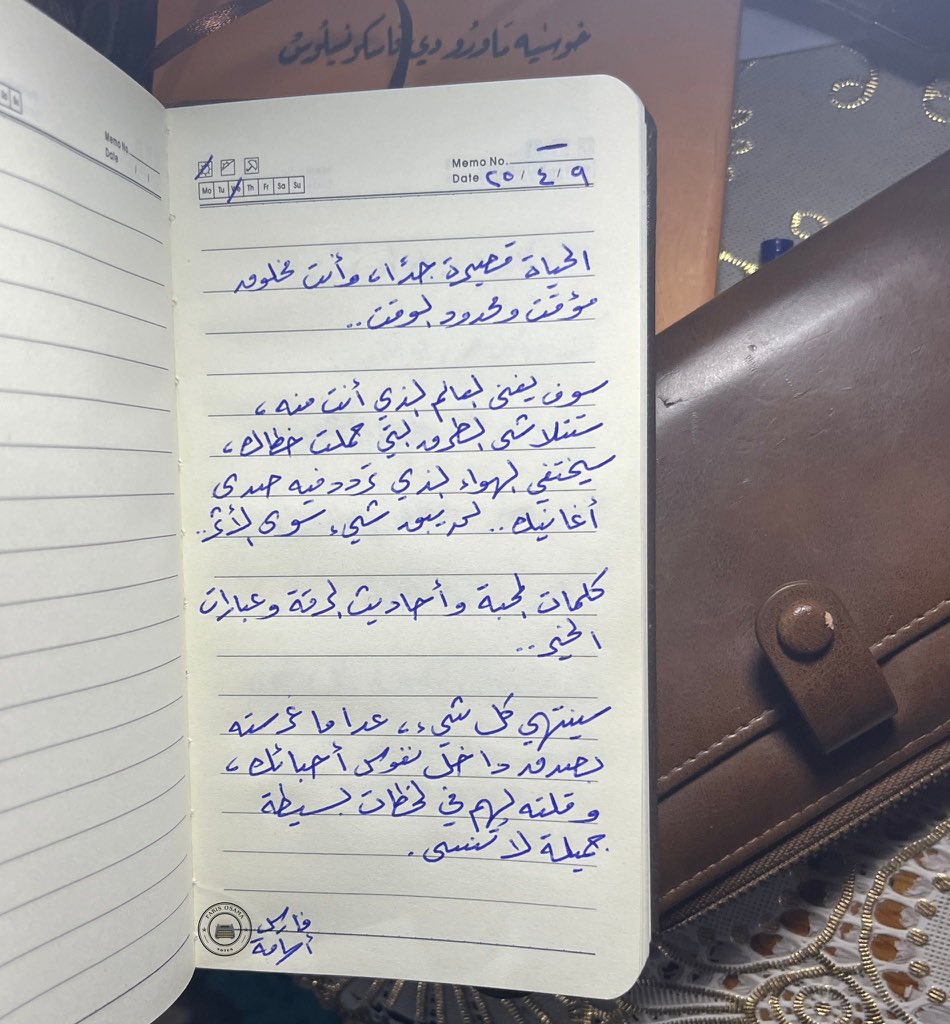 خوسيه ماورو دي فاسكونسيلوس
Memo No.
Date
Memo No. —
Date ٢٥ / ٤ / ٩
Mo Tu We Th Fr Sa Su
الحياة قصيرة جدًا، وأنت مخلوق
مؤقت ومحدود الوقت..
سوف يفنى العالم الذي أنت منه،
ستتلاشى الطرق التي حملت خطاك،
سيختفي الهواء الذي تردد فيه صدى
أغانيك.. لم يبق شيء سوى الأثر..
كلمات المحبة وأحاديث الرقة وعبارات
الخير..
سينتهي كل شيء، عدا ما غرسته
بصدق داخل نفوس أحبائك،
وقلته لهم في لحظات بسيطة
جميلة لا تنسى.
FARIS OSAMA
NOTES
فارس
أسامة